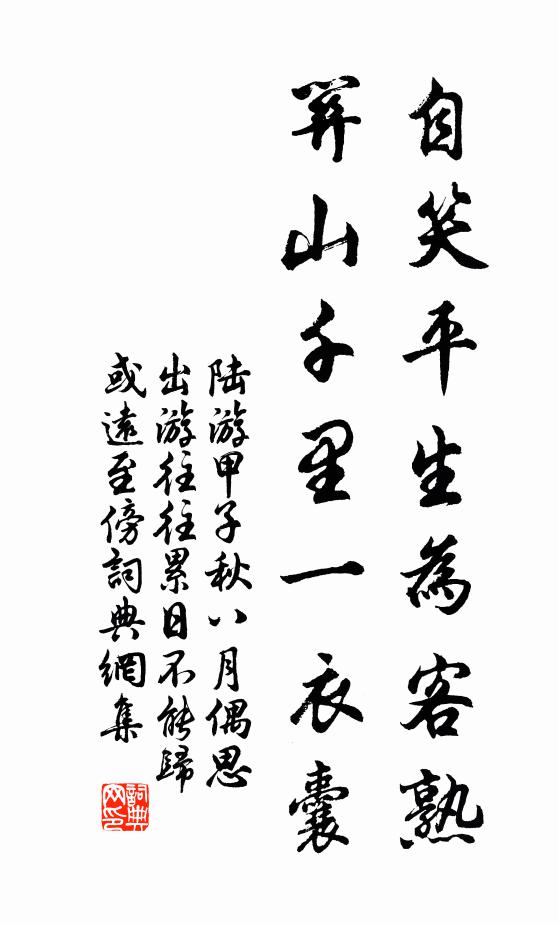 自笑平生為客熟
關山千里一衣囊
陆游甲子秋八月偶思
出游往往累日不能歸
或遠至傍詞典網集
詞典网印